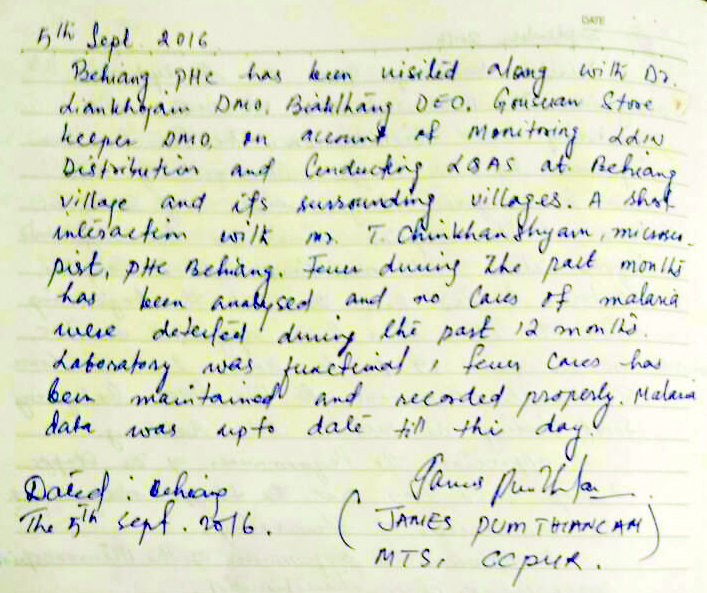 DATE
5th Sept. 2016
Behiang PHC has been visited along with Dr.
Liankhojain DMO, Biaklhang DEO, Gousuan Store
keeper DMO, on account of Monitoring LLIN
Distribution and Conducting LQAS at Behiang
village and its surrounding villages. A short
interaction with mr. T. Chinkhanshyam, microsco
pist, PHC Behiang. Fever during the past months
has been analysed and no Cases of malaria
were detected during the past 12 months.
Laboratory was functional, fever cases has
been maintained and recorded properly. Malaria
data was upto date till thi day.
Dated : Behiang
The 5th Sept. 2016.
James
(JAMES DUMTHIANCAM)
MTS, CCPUR.